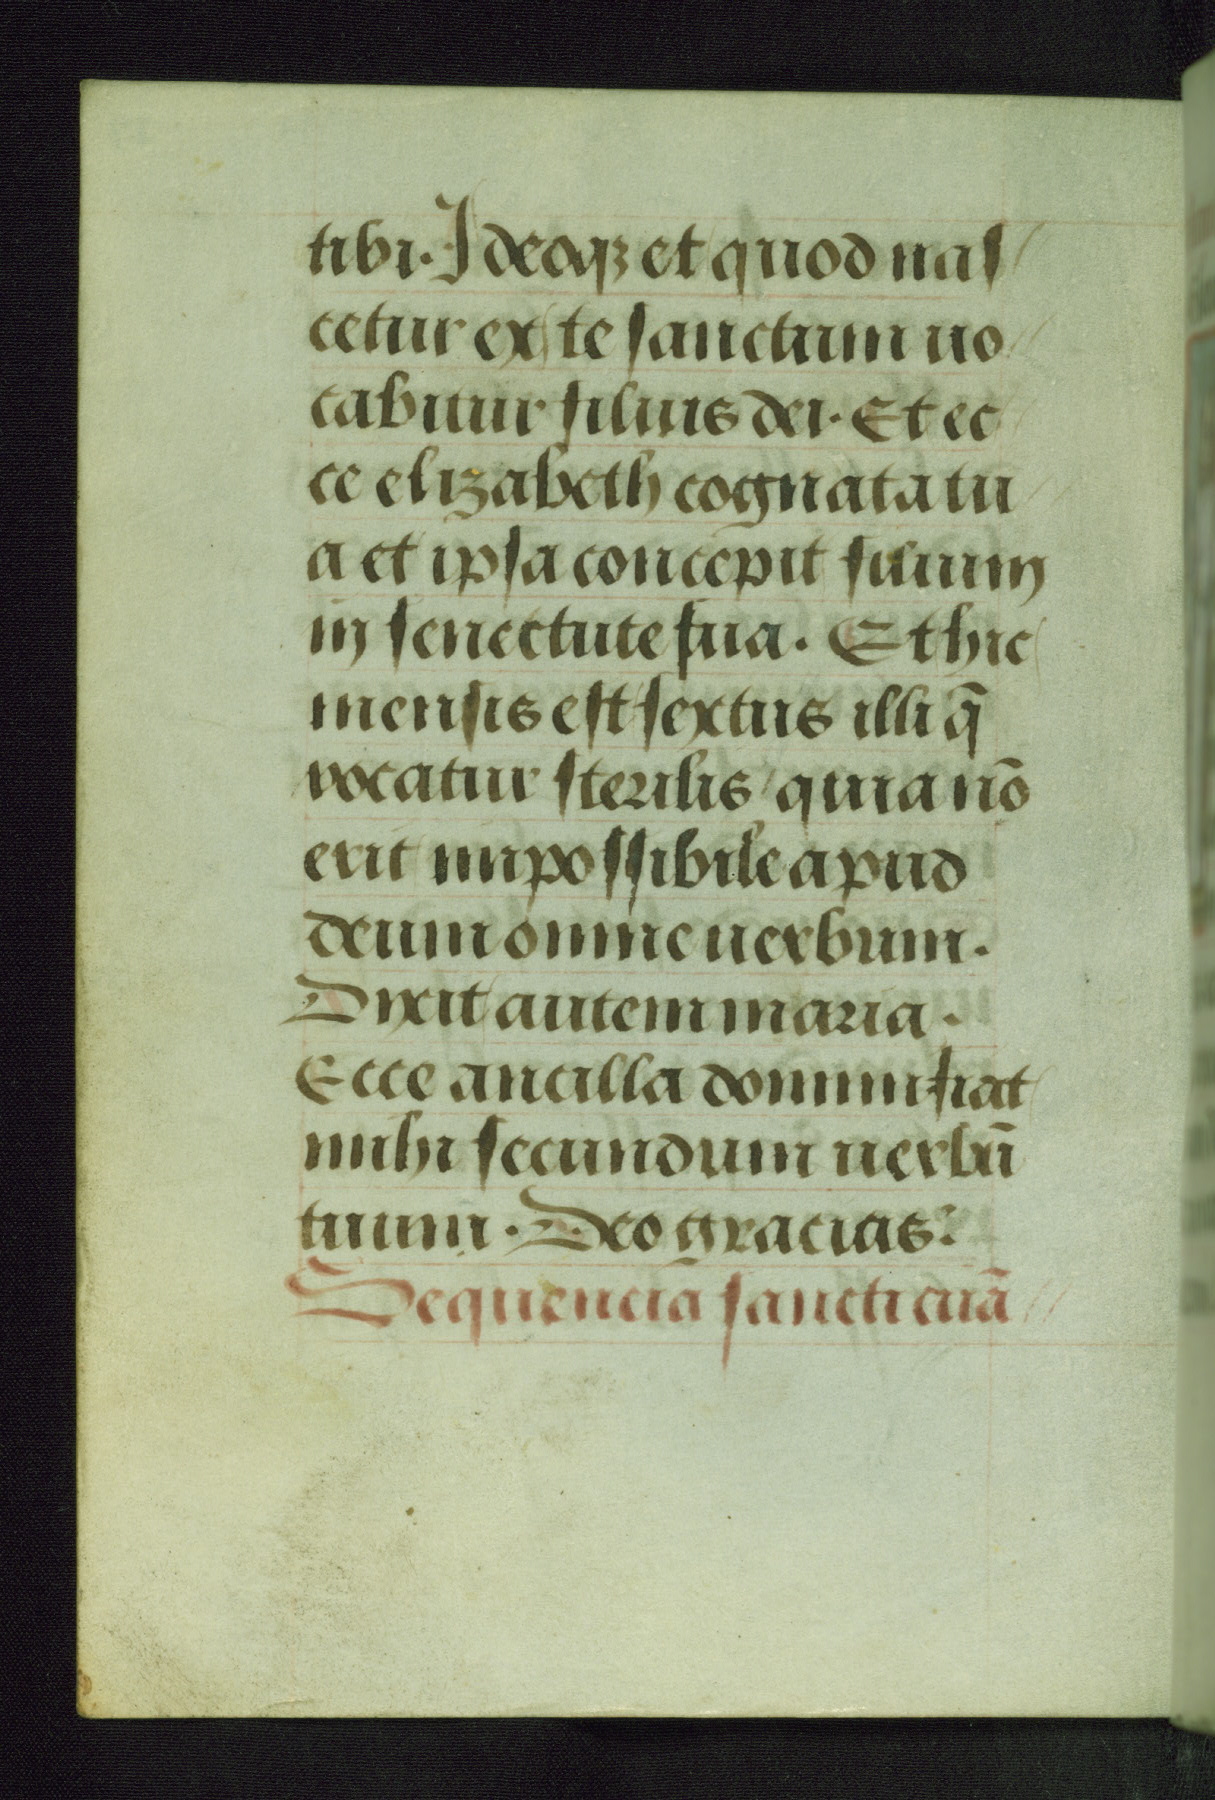 tibi. Ideoqꝫ et quod nas
cetur ex te sanctum uo
cabitur filius dei. Et ec
ce elizabeth cognata tu
a et ipsa concepit filium
in senectute sua. Et hic
mensis est sextus illi q̄
vocatur sterilis quia nō
erit impossibile apud
deum omne uerbum.
Dixit autem maria.
Ecce ancilla domini fiat
mihi secundum uerbū
tuum. Deo gracias.
Sequencia sancti euā